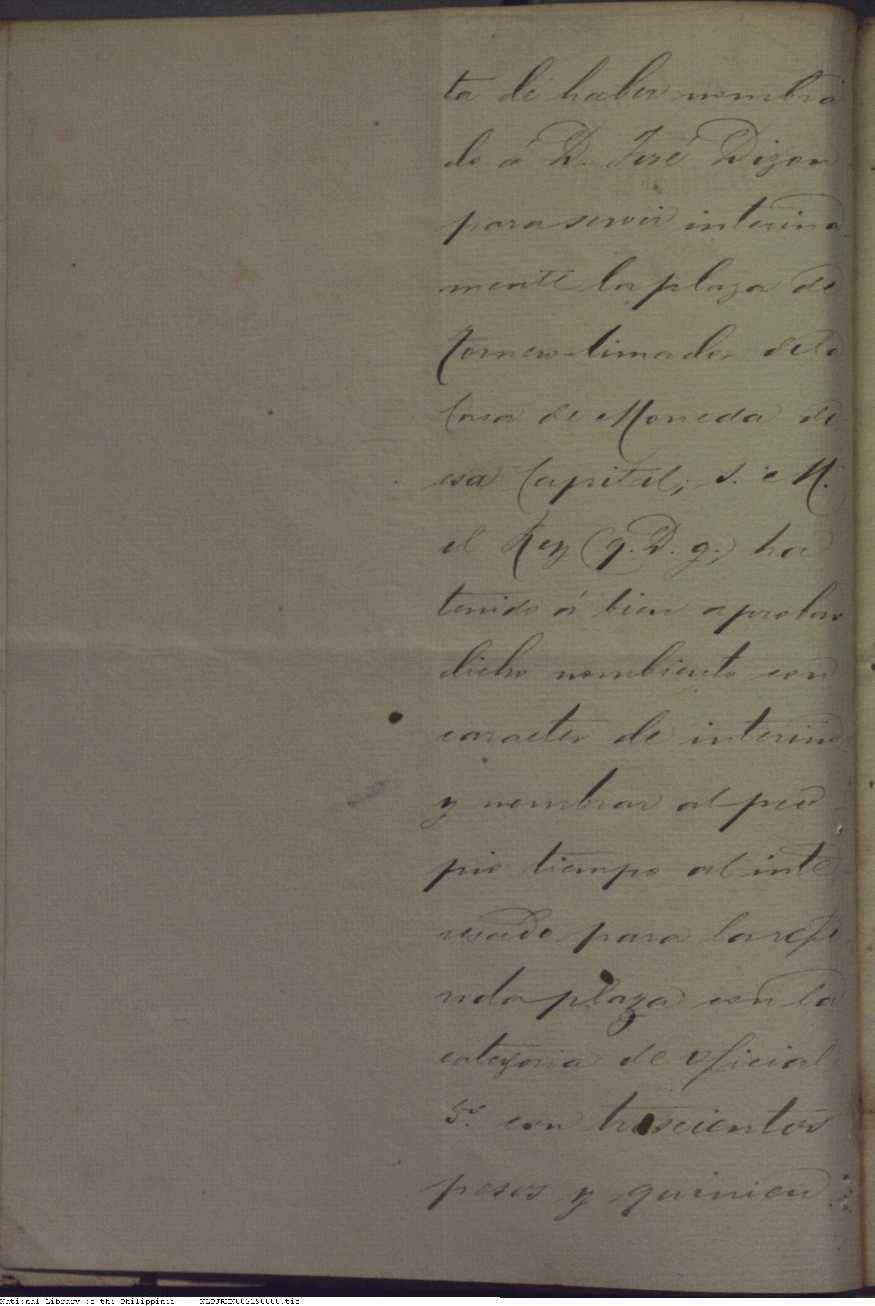 ta de haber nombra
do á D. José Dizon
para servir interina
mente la plaza de
tornero-limador de la
Casa de Moneda de
esa Capital; S. M.
el Rey (q. D. g.) ha
tenido á bien aprobar
dicho nombiento con
caracter de interino
y nombrar al pro
pio tiempo al inte
resado para la refe
rida plaza con la
categoria de oficial
5º. con trescientos
pesos y quinien
National Library of the Philippines